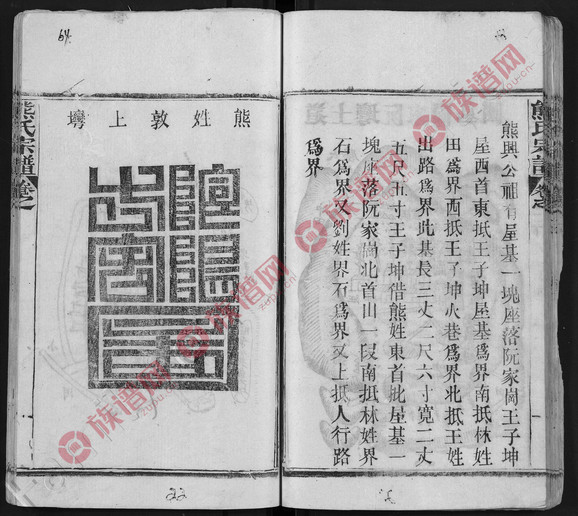 熊興公祖有屋基一塊座落阮家崗王子坤
屋西首東抵王子坤屋基爲界南抵林姓
田爲界西抵王子坤火巷爲界北抵王姓
出路爲界此基長三丈二尺六寸寬二丈
五尺五寸王子坤借熊姓東首批屋基一
塊座落阮家崗北首山一段南抵林姓界
石爲界又劉姓界石爲界又上抵人行路
爲界
熊氏宗譜
卷之
熊姓敦上灣
熊氏宗譜
卷之
族谱网
zupu.cn
22